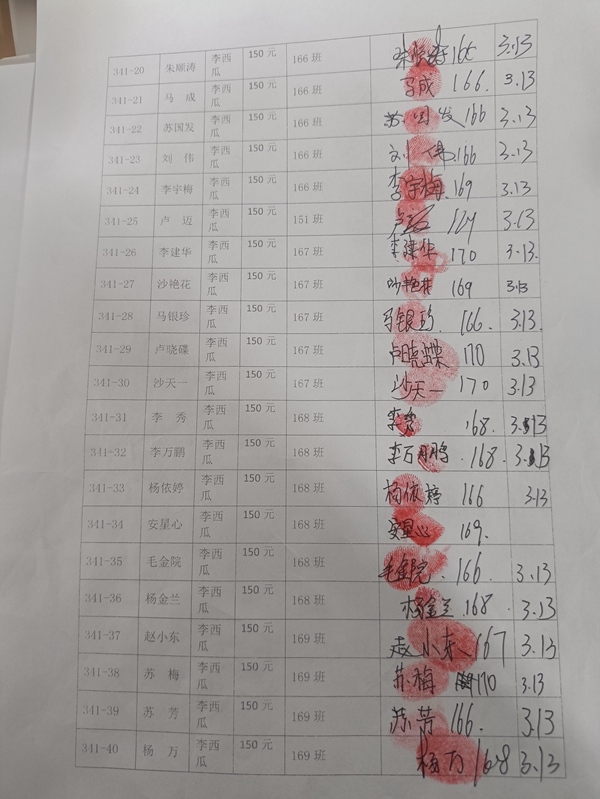 341-20 朱顺涛 李西瓜 150 元 166 班 朱顺涛 166 3.13
341-21 马 成 李西瓜 150 元 166 班 马成 166. 3.13
341-22 苏国发 李西瓜 150 元 166 班 苏国发 166 3.13
341-23 刘 伟 李西瓜 150 元 166 班 刘伟 166 3.13
341-24 李宇梅 李西瓜 150 元 166 班 李宇梅 169 3.13
341-25 卢 迈 李西瓜 150 元 151 班 3.13
341-26 李建华 李西瓜 150 元 167 班 李建华 170 3.13.
341-27 沙艳花 李西瓜 150 元 167 班 沙艳花 169 3.13
341-28 马银珍 李西瓜 150 元 167 班 马银珍 166. 3.13.
341-29 卢晓碟 李西瓜 150 元 167 班 卢晓蝶 170 3.13
341-30 沙天一 李西瓜 150 元 167 班 沙天一 170 3.13
341-31 李 秀 李西瓜 150 元 168 班 李秀 168. 3.13
341-32 李万鹏 李西瓜 150 元 168 班 李万鹏 168. 3.13
341-33 杨依婷 李西瓜 150 元 168 班 杨依婷 166 3.13
341-34 安星心 李西瓜 150 元 168 班 安星心 169.
341-35 毛金院 李西瓜 150 元 168 班 毛金院. 166. 3.13
341-36 杨金兰 李西瓜 150 元 168 班 杨金兰 168. 3.13
341-37 赵小东 李西瓜 150 元 169 班 赵小东 167 3.13
341-38 苏 梅 李西瓜 150 元 169 班 苏梅 170 3.13
341-39 苏 芳 李西瓜 150 元 169 班 苏芳 166. 3.13
341-40 杨 万 李西瓜 150 元 169 班 杨万 168 3.13